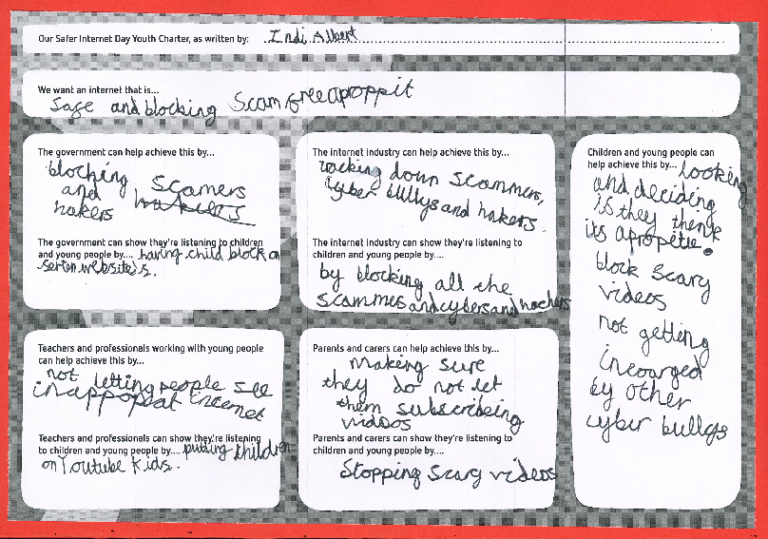 Our Safer Internet Day Youth Charter, as written by: Indi Albert
We want an internet that is...
Safe and blocking Scam free apoppit
The government can help achieve this by...
blocking scamers
and
hakers
The government can show they're listening to children
and young people by.... having child block on
serten website's.
The internet industry can help achieve this by...
down scammers,
cyber bullys and hakers.
The internet industry can show they're listening to
children and young people by....
by blocking all the
scammes and cybers and hackers
Children and young people can
help achieve this by... looking
and deciding
is they
its apropetie.
block scary
videos
not getting
incourged
by other
cyber bullys
Teachers and professionals working with young people
can help achieve this by...
not letting people see
inappopeat internet
Teachers and professionals can show they're listening
to children and young people by.... putting children
on Youtube Kids.
Parents and carers can help achieve this by...
making sure
they do not let
them subscribing
videos
Parents and carers can show they're listening to
children and young people by....
Stopping Scary videos